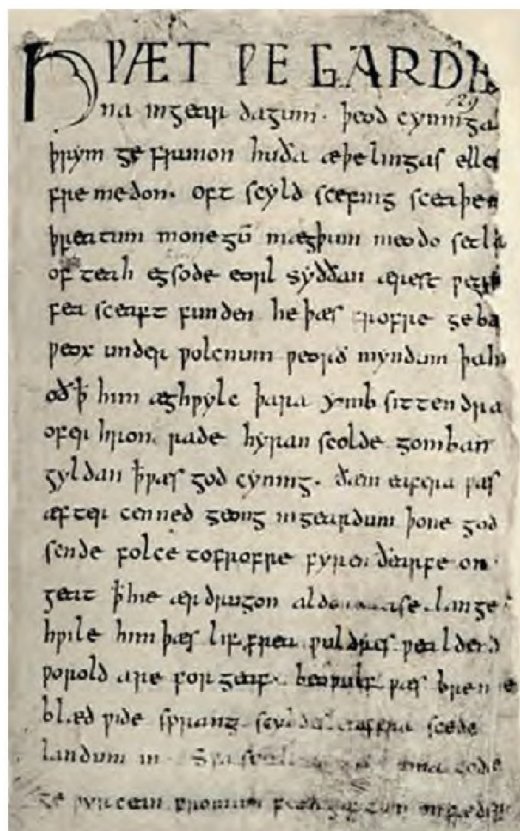 HǷÆT ǷE GARDE
129
na ingear dagum. þeod cyninga
þrym ge frunon huða æþelingas elle
fre medon. oft scyld scefing sceaþen
þreatum monegū mægþum meodo setla
of teah egsode eorl syððan ærest ƿear
fea sceaft funden he þæs frofre geba
ƿeox under ƿolcnum ƿeorð myndum þah
oð ꝥ him æghƿylc þara ymb sittendra
ofer hron rade hyran scolde gomban
gyldan ꝥ ƿæs god cyning. ðæm eafera ƿæs
æfter cenned geong ingeardum þone god
sende folce tofrofre fyren ðearfe on
geat ꝥ hie ær drugon aldor ase. lange
hƿile him þæs lif frea ƿuldres ƿealdend
ƿorold are for geaf. beoƿulf ƿæs breme
blæd ƿide sprang scyldes eafera scede
landum in. Sƿa sceal uma gode
ge ƿyrcean fromum feoh giftum